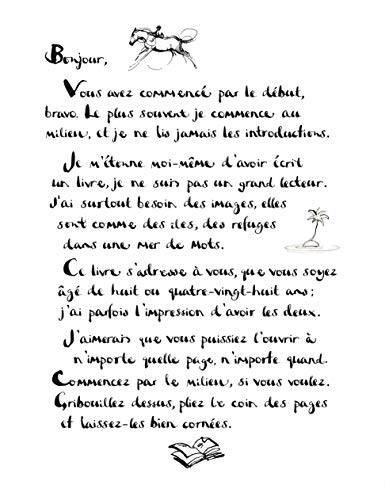 Bonjour,
Vous avez commencé par le début,
bravo. Le plus souvent je commence au
milieu, et je ne lis jamais les introductions.
Je m'étonne moi-même d'avoir écrit
un livre, je ne suis pas un grand lecteur.
J'ai surtout besoin des images, elles
sont comme des îles, des refuges
dans une mer de mots.
Ce livre s'adresse à vous, que vous soyez
âgé de huit ou quatre-vingt-huit ans ;
j'ai parfois l'impression d'avoir les deux.
J'aimerais que vous puissiez l'ouvrir à
n'importe quelle page, n'importe quand.
Commencez par le milieu, si vous voulez.
Gribouillez dessus, pliez le coin des pages
et laissez-les bien cornées.